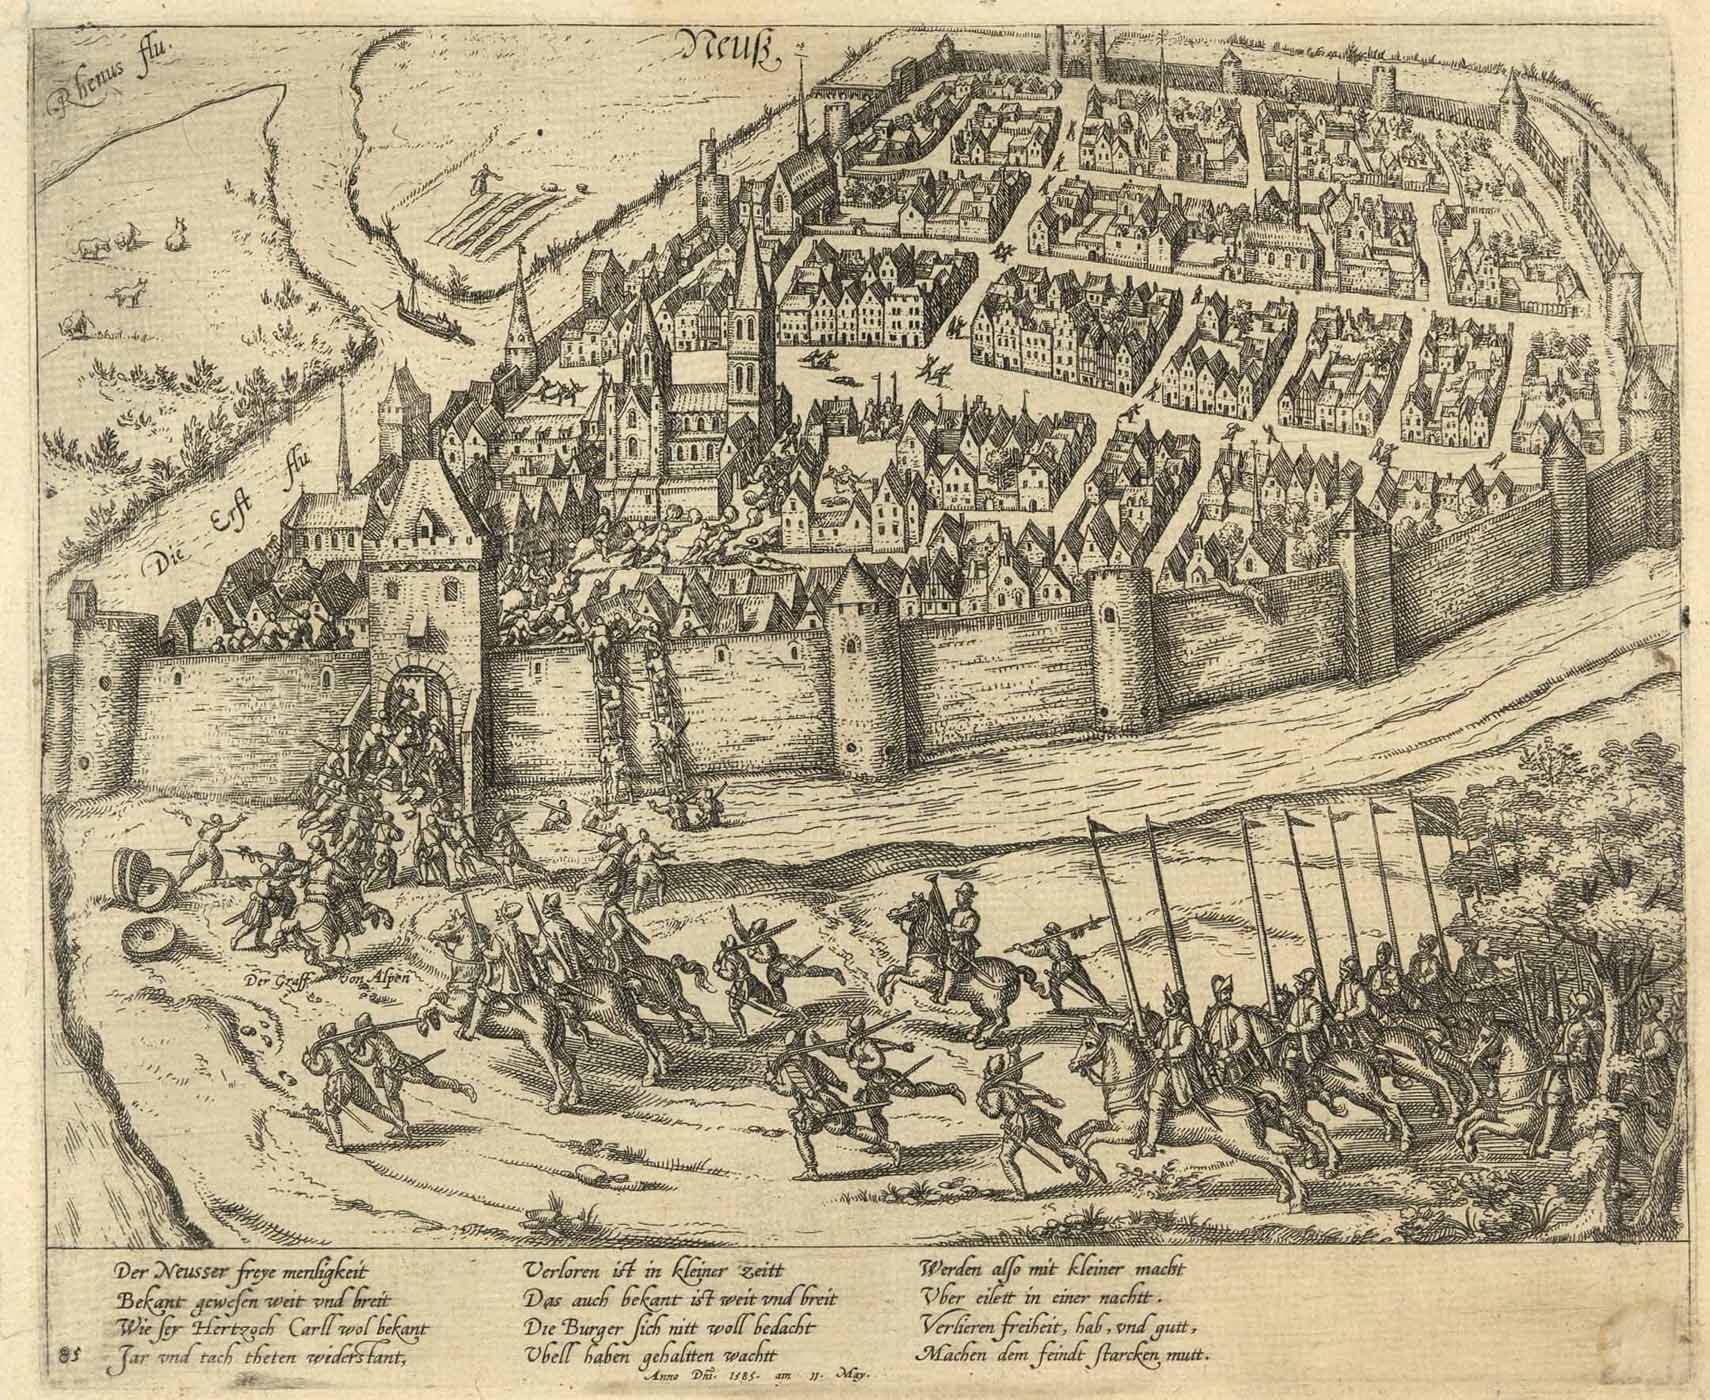 Rhenus flu.
Neuß
Die Erft flu
Der Graff von Alpen
Der Neusser freye menligkeit
Bekant gewesen weit vnd breit
Wie ser Hertzoch Carll wol bekant
Jar vnd tach theten widerstant,
Verloren ist in kleiner zeitt
Das auch bekant ist weit vnd breit
Die Burger sich nitt woll bedacht
Vbell haben gehaltten wachtt
Werden also mit kleiner macht
Vber eilett in einer nachtt.
Verlieren freiheit, hab, vnd gutt,
Machen dem feindt starcken mutt.
85
Anno Dñi. 1585. am 11. May.